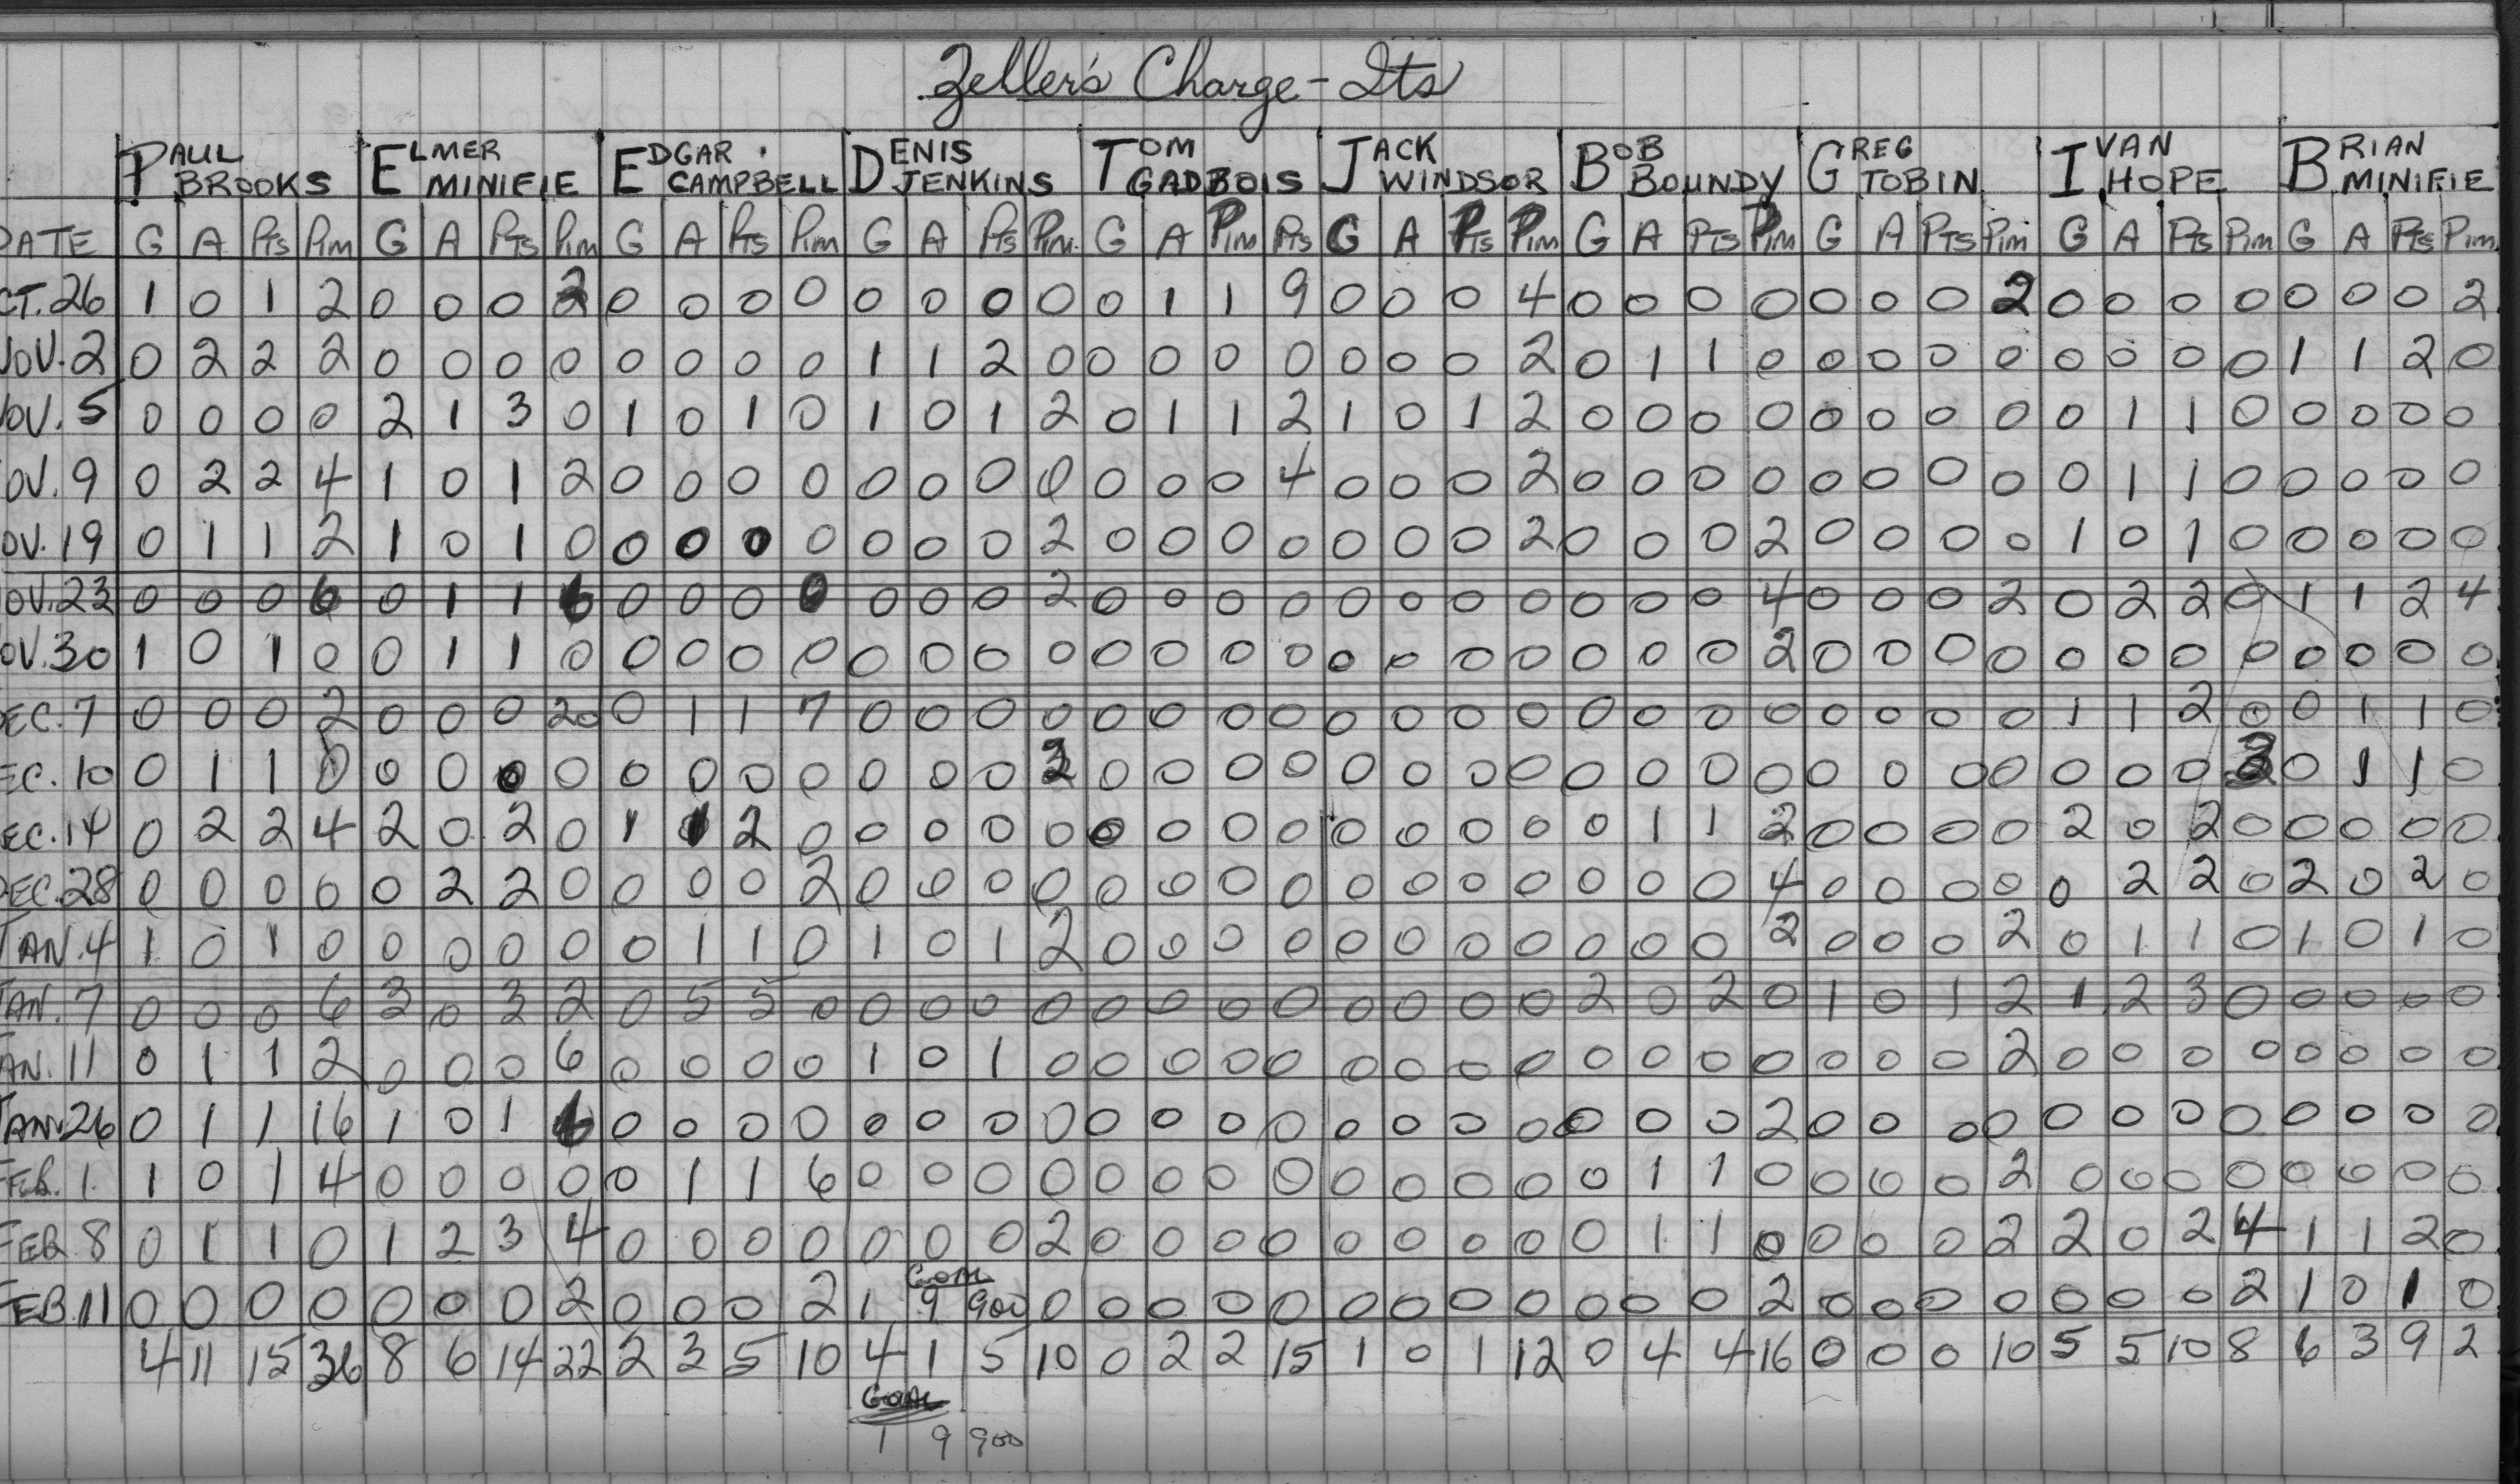 Zeller's Charge-Its
PAUL BROOKS ELMER MINIFIE EDGAR CAMPBELL DENIS JENKINS TOM GADBOIS JACK WINDSOR BOB BOUNDY GREG TOBIN IVAN HOPE BRIAN MINIFIE
DATE G A Pts Pim G A Pts Pim G A Pts Pim G A Pts Pim G A Pim Pts G A Pts Pim G A PTS Pim G A PTS Pim G A Pts Pim G A Pts Pim
CT.26 1 0 1 2 0 0 0 2 0 0 0 0 0 0 0 0 0 1 1 9 0 0 0 4 0 0 0 0 0 0 0 2 0 0 0 0 0 0 0 2
NOV.2 0 2 2 2 0 0 0 0 0 0 0 0 1 1 2 0 0 0 0 0 0 0 0 2 0 1 1 0 0 0 0 0 0 0 0 0 1 1 2 0
OV.5 0 0 0 0 2 1 3 0 1 0 1 0 1 0 1 2 0 1 1 2 1 0 1 2 0 0 0 0 0 0 0 0 0 1 1 0 0 0 0 0
OV.9 0 2 2 4 1 0 1 2 0 0 0 0 0 0 0 0 0 0 0 4 0 0 0 2 0 0 0 0 0 0 0 0 0 1 1 0 0 0 0 0
OV.19 0 1 1 2 1 0 1 0 0 0 0 0 0 0 0 2 0 0 0 0 0 0 0 2 0 0 0 2 0 0 0 0 1 0 1 0 0 0 0 0
OV.23 0 0 0 6 0 1 1 6 0 0 0 0 0 0 0 2 0 0 0 0 0 0 0 0 0 0 0 4 0 0 0 2 0 2 2 0 1 1 2 4
OV.30 1 0 1 0 0 1 1 0 0 0 0 0 0 0 0 0 0 0 0 0 0 0 0 0 0 0 0 2 0 0 0 0 0 0 0 0 0 0 0 0
EC.7 0 0 0 2 0 0 0 20 0 1 1 7 0 0 0 0 0 0 0 0 0 0 0 0 0 0 0 0 0 0 0 0 1 1 2 0 0 1 1 0
EC.10 0 1 1 0 0 0 0 0 0 0 0 0 0 0 0 2 0 0 0 0 0 0 0 0 0 0 0 0 0 0 0 0 0 0 0 2 0 1 1 0
EC.14 0 2 2 4 2 0 2 0 1 1 2 0 0 0 0 0 0 0 0 0 0 0 0 0 0 1 1 2 0 0 0 0 2 0 2 0 0 0 0 0
DEC.28 0 0 0 0 0 2 2 0 0 0 0 2 0 0 0 0 0 0 0 0 0 0 0 0 0 0 0 4 0 0 0 0 0 2 2 0 2 0 2 0
JAN.4 1 0 1 0 0 0 0 0 0 1 1 0 1 0 1 2 0 0 0 0 0 0 0 0 0 0 0 2 0 0 0 2 0 1 1 0 1 0 1 0
JAN.7 0 0 0 6 3 0 3 2 0 5 5 0 0 0 0 0 0 0 0 0 0 0 0 0 2 0 2 0 1 0 1 2 1 2 3 0 0 0 0 0
AN.11 0 1 1 2 0 0 0 6 0 0 0 0 1 0 1 0 0 0 0 0 0 0 0 0 0 0 0 0 0 0 0 2 0 0 0 0 0 0 0 0
JAN.26 0 1 1 16 1 0 1 6 0 0 0 0 0 0 0 0 0 0 0 0 0 0 0 0 0 0 0 2 0 0 0 0 0 0 0 0 0 0 0 0
FEB.1 1 0 1 4 0 0 0 0 0 1 1 6 0 0 0 0 0 0 0 0 0 0 0 0 0 1 1 0 0 0 0 2 0 0 0 0 0 0 0 0
FEB 8 0 1 1 0 1 2 3 4 0 0 0 0 0 0 0 2 0 0 0 0 0 0 0 0 0 1 1 0 0 0 0 2 2 0 2 4 1 1 2 0
GOAL
FEB.11 0 0 0 0 0 0 0 2 0 0 0 2 1 9 900 0 0 0 0 0 0 0 0 0 0 0 0 2 0 0 0 0 0 0 0 2 1 0 1 0
4 11 15 36 8 6 14 22 2 3 5 10 4 1 5 10 0 2 2 15 1 0 1 12 0 4 4 16 0 0 0 10 5 5 10 8 6 3 9 2
GOAL
1 9 900